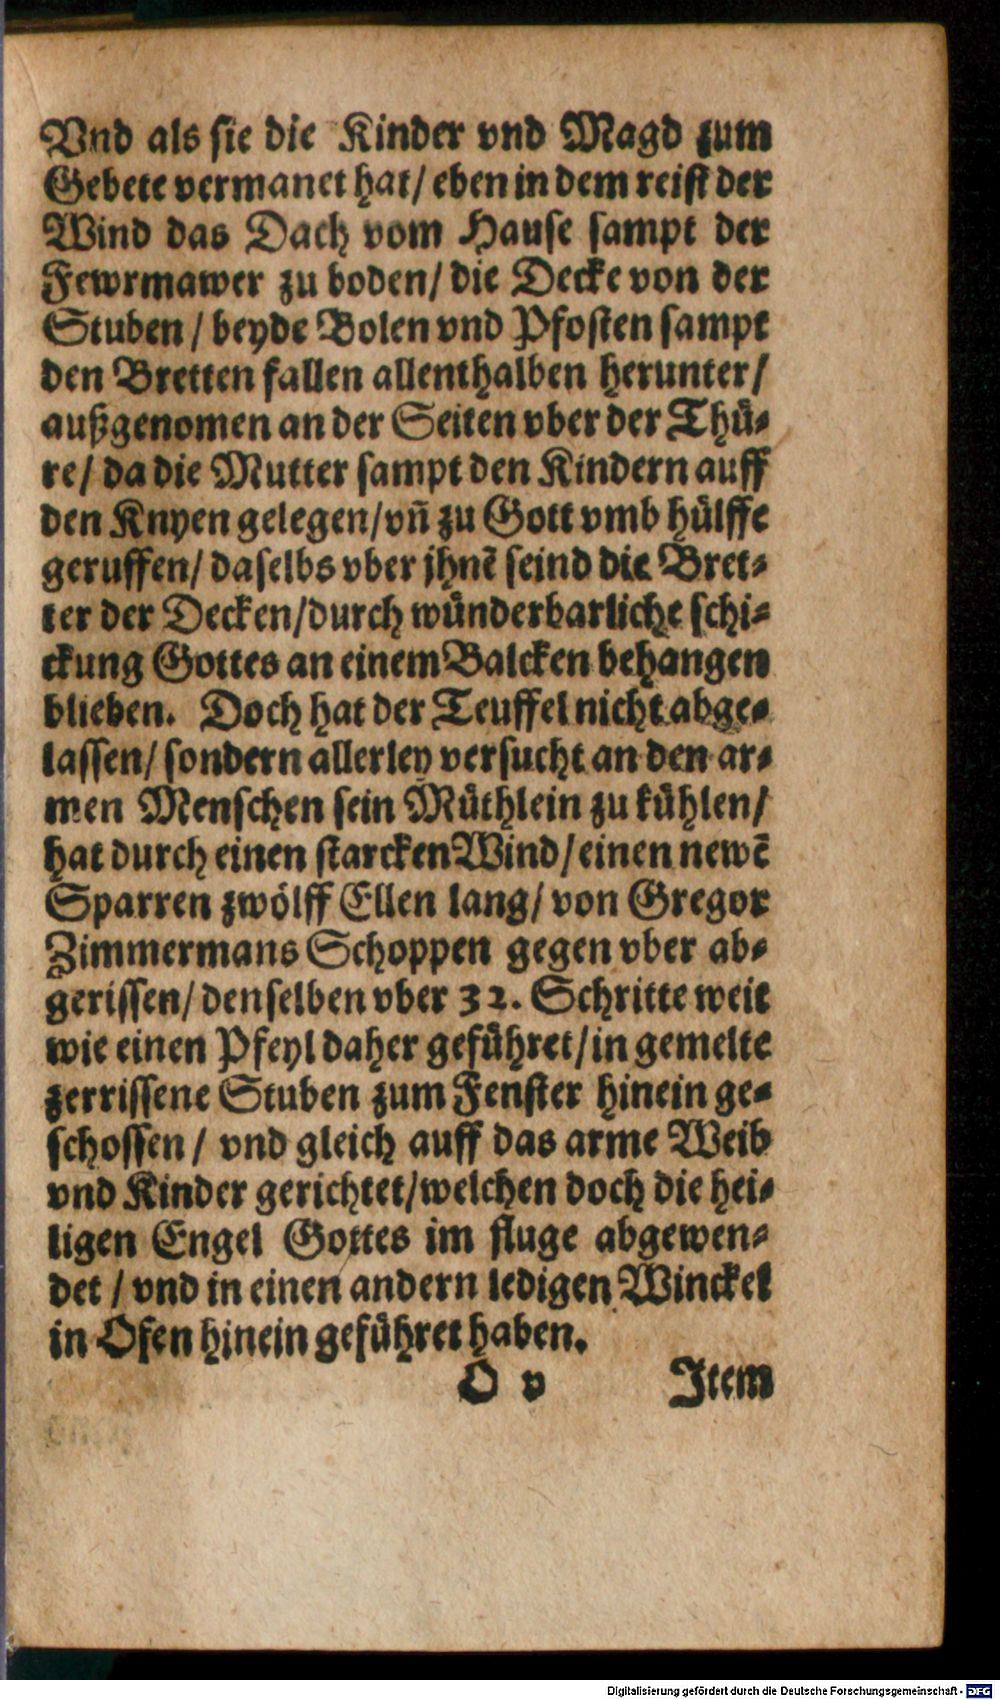 Vnd als sie die Kinder vnd Magd zum
Gebete vermanet hat / eben in dem reist der
Wind das Dach vom Hause sampt der
Fewrmawer zu boden / die Decke von der
Stuben / beyde Bolen vnd Pfosten sampt
den Bretten fallen allenthalben herunter /
außgenomen an der Seiten vber der Thuͤ⸗
re / da die Mutter sampt den Kindern auff
den Knyen gelegen / vñ zu Gott vmb huͤlffe
geruffen / daselbs vber jhnẽ seind die Bret⸗
ter der Decken / durch wuͤnderbarliche schi⸗
ckung Gottes an einem Balcken behangen
blieben. Doch hat der Teuffel nicht abge⸗
lassen / sondern allerley versucht an den ar⸗
men Menschen sein Muͤthlein zu kuͤhlen /
hat durch einen starcken Wind / einen newẽ
Sparren zwoͤlff Ellen lang / von Gregor
Zimmermans Schoppen gegen vber ab⸗
gerissen / denselben vber 32. Schritte weit
wie einen Pfeyl daher gefuͤhret / in gemelte
zerrissene Stuben zum Fenster hinein ge⸗
schossen / vnd gleich auff das arme Weib
vnd Kinder gerichtet / welchen doch die hei⸗
ligen Engel Gottes im fluge abgewen⸗
det / vnd in einen andern ledigen Winckel
in Ofen hinein gefuͤhret haben.
O v Item
Digitalisierung gefördert durch die Deutsche Forschungsgemeinschaft - DFG